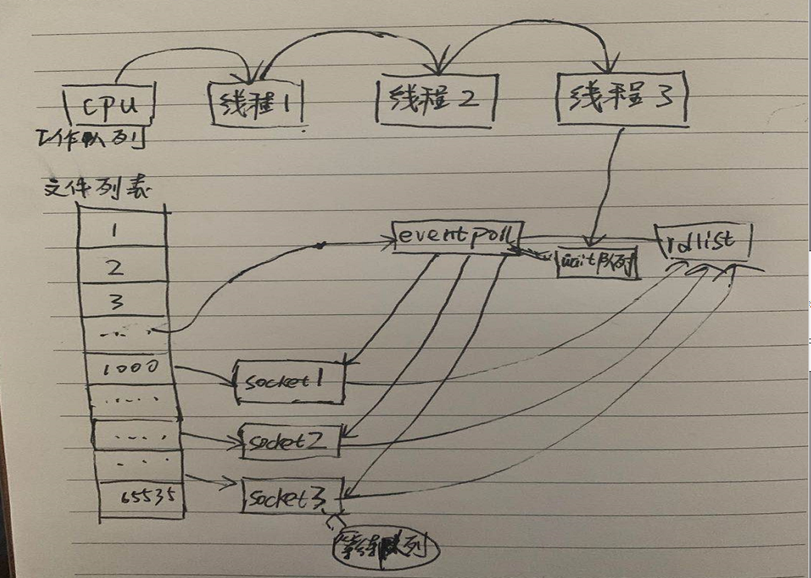 cpu
线程1
线程2
线程3
工作队列
文件列表
1
2
3
....
1000
.....
....
...
65535
eventpoll
wait队列
rdlist
socket1
socket2
socket3
等待队列